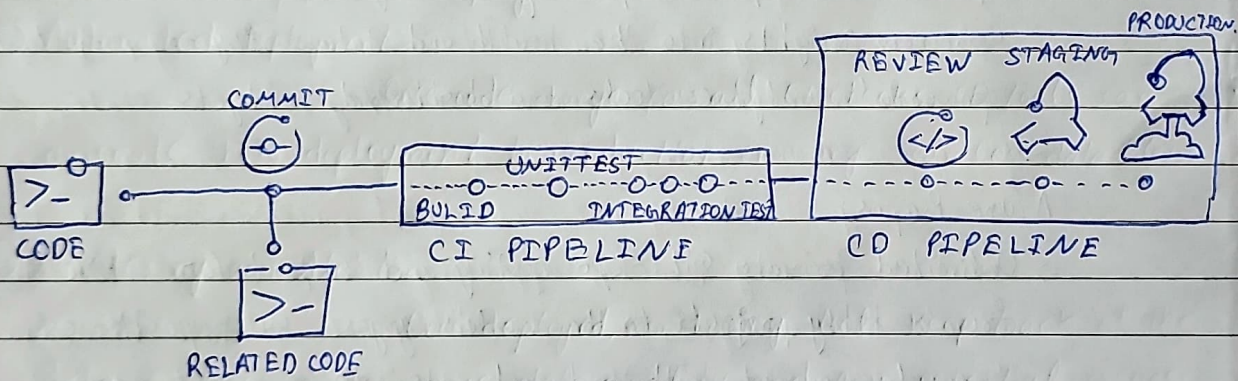 PRODUCTION.
REVIEW STAGING
COMMIT
</>
>_
UNITTEST
BULID INTEGRATION TEST
CODE
CI PIPELINE
CD PIPELINE
>-
RELATED CODE